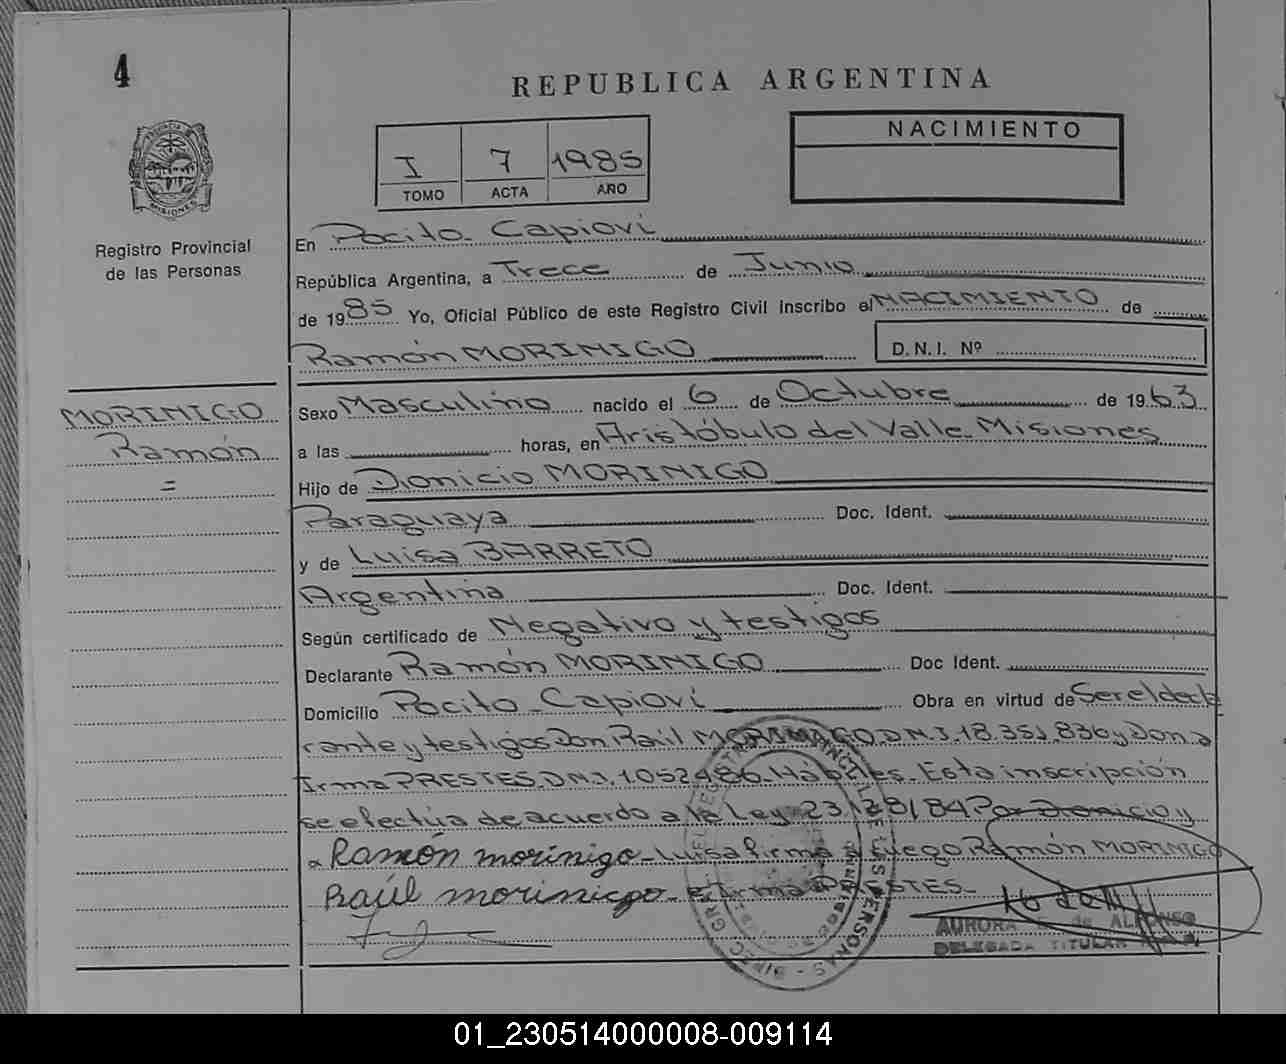 4
REPUBLICA ARGENTINA
PROVINCIA DE MISIONES
Registro Provincial
de las Personas
I 7 1985
TOMO ACTA AÑO
NACIMIENTO
En Pocito Capioví
República Argentina, a Trece de Junio
de 1985 Yo, Oficial Público de este Registro Civil inscribo el NACIMIENTO de
Ramón MORINIGO D.N.I. Nº
MORINIGO
Ramón
=
Sexo Masculino nacido el 6 de Octubre de 1963
a las horas, en Aristóbulo del Valle. Misiones
Hijo de Dionicio MORINIGO
Paraguaya Doc. Ident.
y de Luisa BARRETO
Argentina Doc. Ident.
Según certificado de Negativo y testigos
Declarante Ramón MORINIGO Doc Ident.
Domicilio Pocito Capioví Obra en virtud de Ser el decla
rante y testigos Don Raúl D.N.I. 18.351.836 y Dona
Irma PRESTES. D.N.I. Hábiles. Esta inscripción
se efectúa de acuerdo a la Ley 23.128/84 Por Dionicio y
Ramón morinigo Luisa firma a ruego Ramón MORINIGO
Raúl morinigo Irma PRESTES
AURORA E. de ALFONSO
DELEGADA TITULAR
01_230514000008-009114